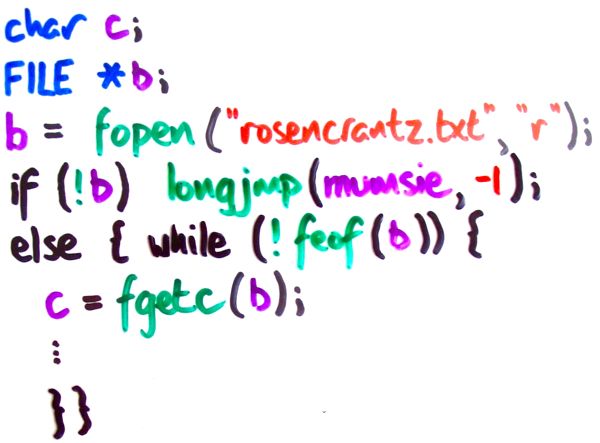 char c;
FILE *b;
b = fopen ("rosencrantz.txt", "r");
if (!b) longjmp(mumsie, -1);
else { while (!feof(b)) {
c = fgetc(b);
⋮
}}